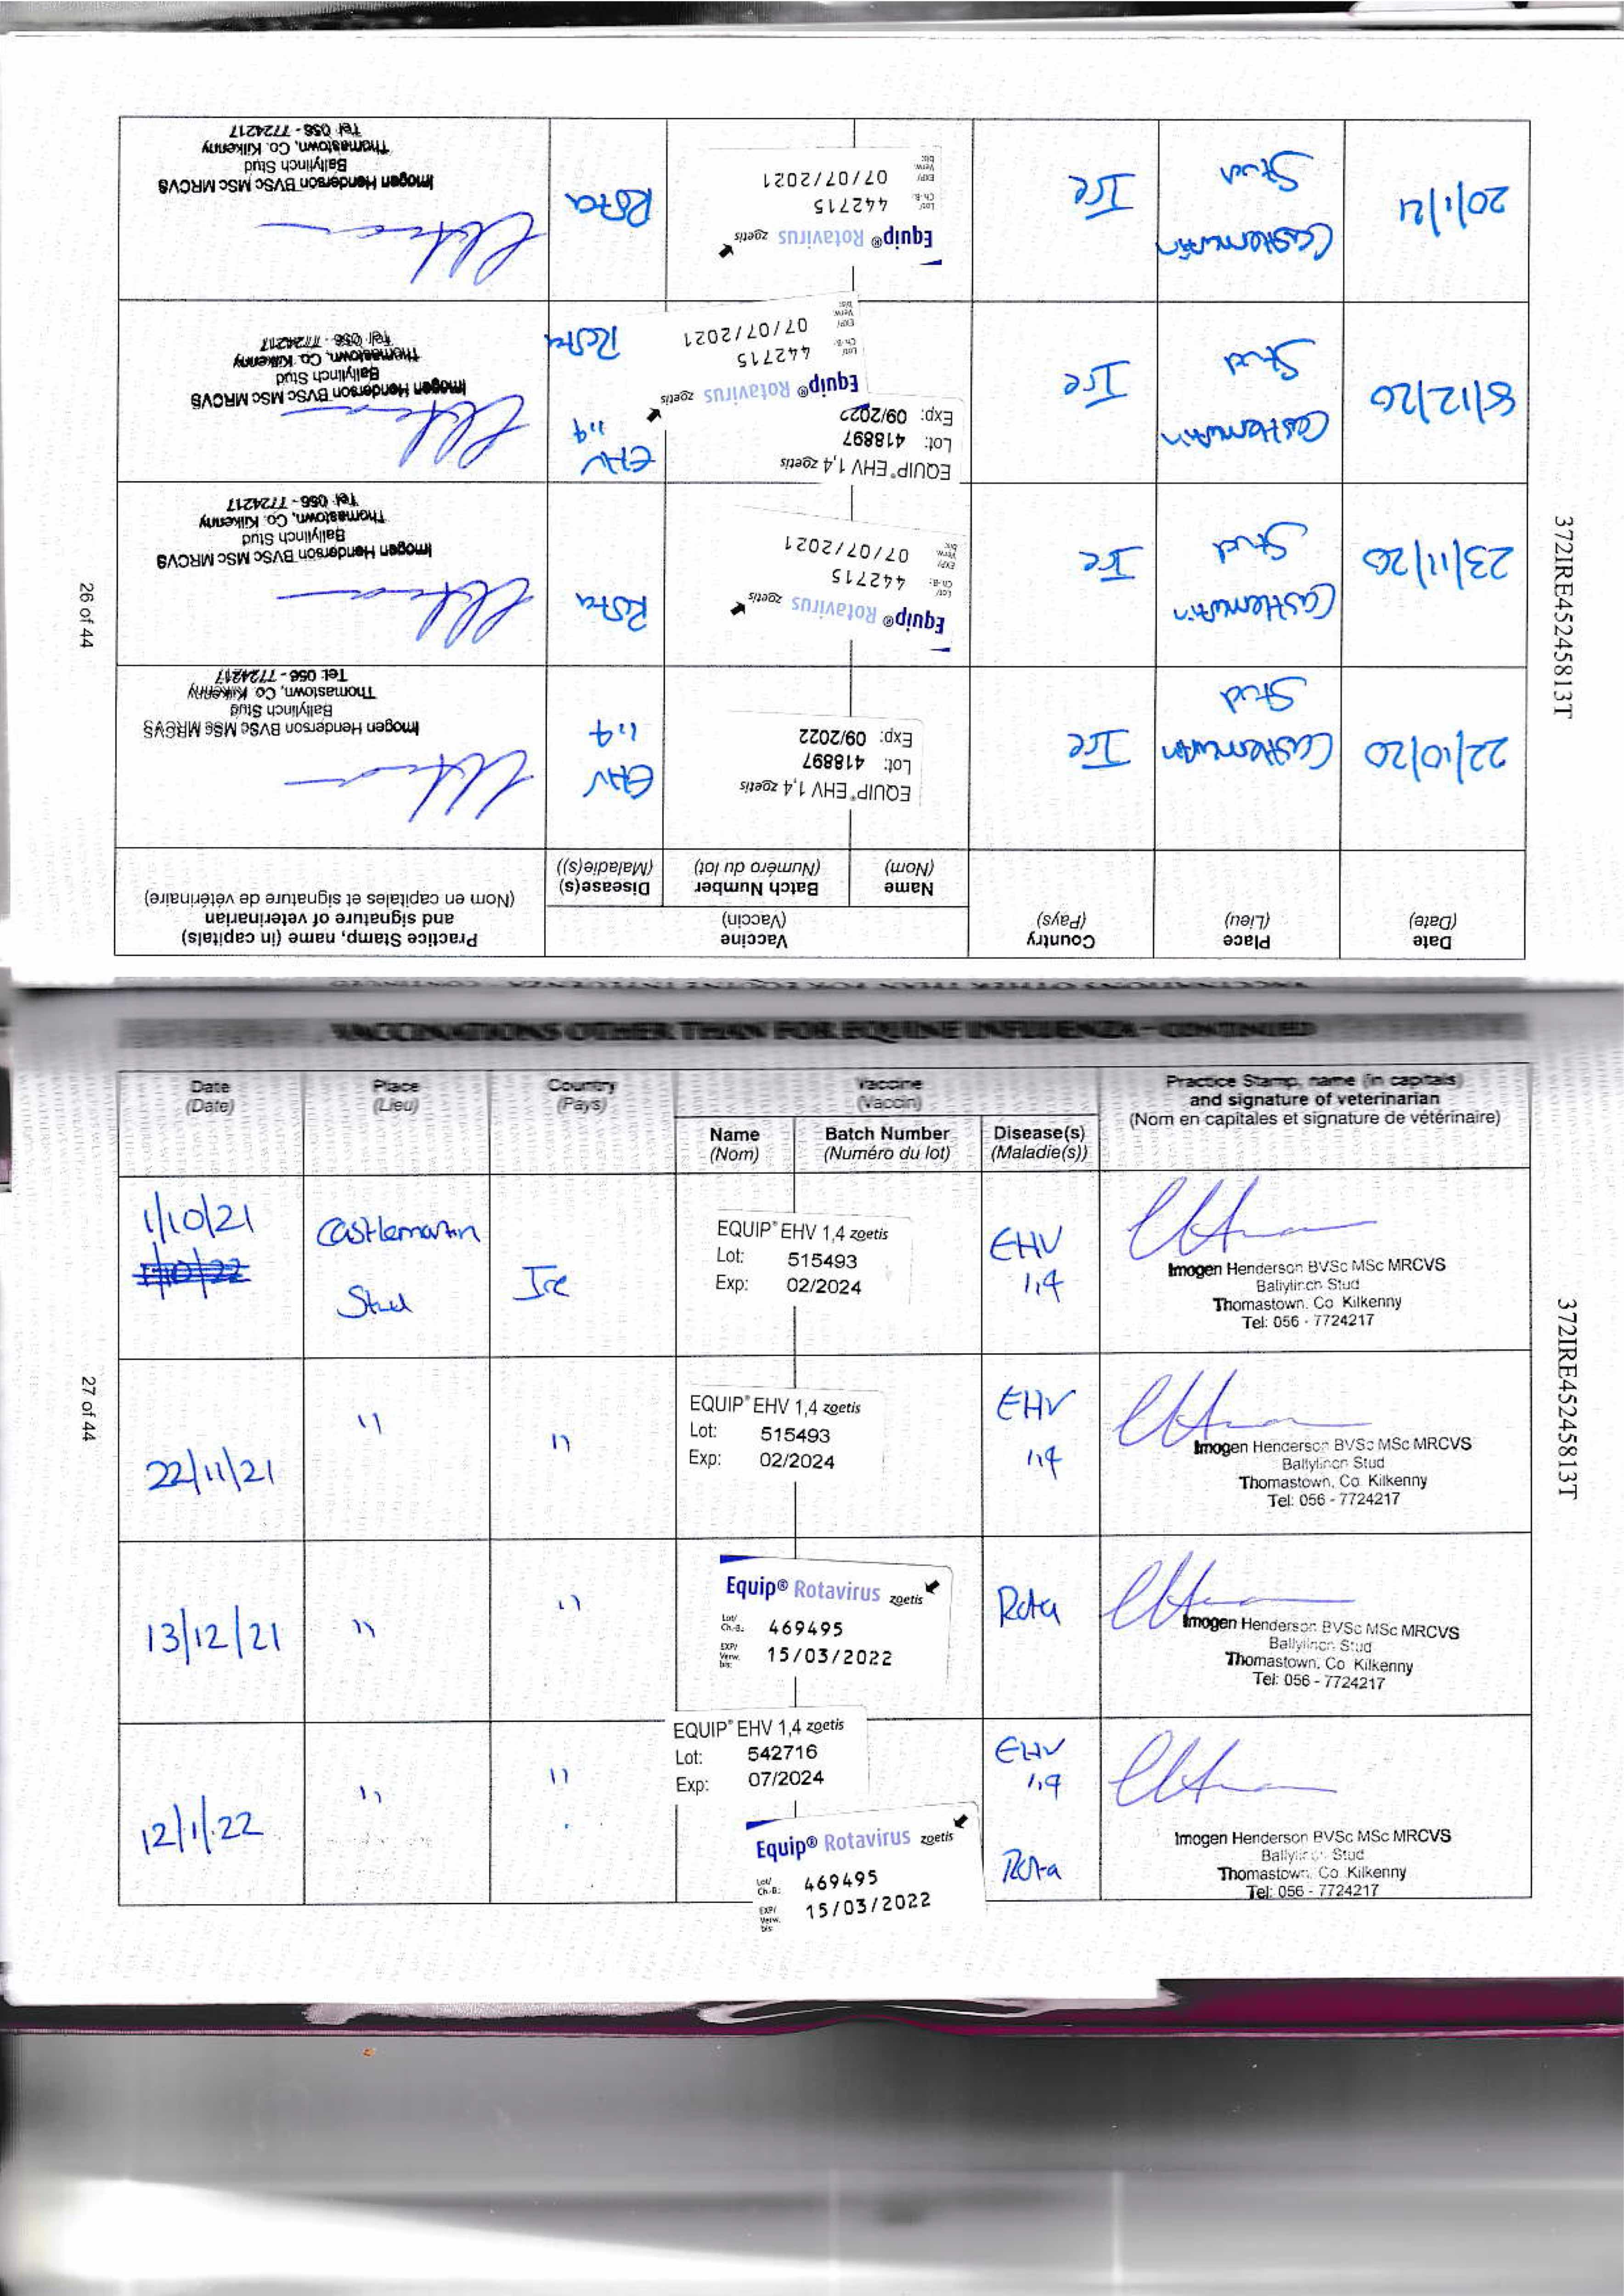 26 of 44
372IRE45245813T
Date
(Date)
Place
(Lieu)
Country
(Pays)
Vaccine
(Vaccin)
Name
(Nom)
Batch Number
(Numéro du lot)
Disease(s)
(Maladie(s))
Practice Stamp, name (in capitals)
and signature of veterinarian
(Nom en capitales et signature de vétérinaire)
22/10/20
Castlemartin
Stud
Ire
EQUIP® EHV 1,4 zoetis
Lot: 418897
Exp: 09/2022
EHV
1,4
Imogen Henderson BVSc MSc MRCVS
Ballylinch Stud
Thomastown, Co. Kilkenny
Tel: 056 - 7724217
23/11/20
Castlemartin
Stud
Ire
Equip® Rotavirus zoetis
Lot/
Ch.-B.: 442715
EXP/
Verw.
bis: 07/07/2021
Rota
Imogen Henderson BVSc MSc MRCVS
Ballylinch Stud
Thomastown, Co. Kilkenny
Tel: 056 - 7724217
8/12/20
Castlemartin
Stud
Ire
EQUIP® EHV 1,4 zoetis
Lot: 418897
Exp: 09/2022
Equip® Rotavirus zoetis
Lot/
Ch.-B.: 442715
EXP/
Verw.
bis: 07/07/2021
EHV
1,4
Rota
Imogen Henderson BVSc MSc MRCVS
Ballylinch Stud
Thomastown, Co. Kilkenny
Tel: 056 - 7724217
20/1/21
Castlemartin
Stud
Ire
Equip® Rotavirus zoetis
Lot/
Ch.-B.: 442715
EXP/
Verw.
bis: 07/07/2021
Rota
Imogen Henderson BVSc MSc MRCVS
Ballylinch Stud
Thomastown, Co. Kilkenny
Tel: 056 - 7724217
VACCINATIONS OTHER THAN FOR EQUINE INFLUENZA - CONTINUED
27 of 44
372IRE45245813T
Date
(Date)
Place
(Lieu)
Country
(Pays)
Vaccine
(Vaccin)
Name
(Nom)
Batch Number
(Numéro du lot)
Disease(s)
(Maladie(s))
Practice Stamp, name (in capitals)
and signature of veterinarian
(Nom en capitales et signature de vétérinaire)
1/10/21
1/10/22
Castlemartin
Stud
Ire
EQUIP® EHV 1,4 zoetis
Lot: 515493
Exp: 02/2024
EHV
1,4
Imogen Henderson BVSc MSc MRCVS
Ballylinch Stud
Thomastown, Co Kilkenny
Tel: 056 - 7724217
22/11/21
"
"
EQUIP® EHV 1,4 zoetis
Lot: 515493
Exp: 02/2024
EHV
1,4
Imogen Henderson BVSc MSc MRCVS
Ballylinch Stud
Thomastown, Co. Kilkenny
Tel: 056 - 7724217
13/12/21
"
"
Equip® Rotavirus zoetis
Lot/
Ch.-B.: 469495
EXP/
Verw.
bis: 15/03/2022
Rota
Imogen Henderson BVSc MSc MRCVS
Ballylinch Stud
Thomastown, Co Kilkenny
Tel: 056 - 7724217
12/1/22
"
"
EQUIP® EHV 1,4 zoetis
Lot: 542716
Exp: 07/2024
Equip® Rotavirus zoetis
Lot/
Ch.-B.: 469495
EXP/
Verw.
bis: 15/03/2022
EHV
1,4
Rota
Imogen Henderson BVSc MSc MRCVS
Ballylinch Stud
Thomastown, Co. Kilkenny
Tel: 056 - 7724217